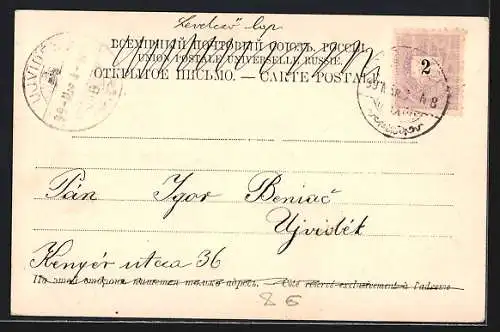 Levelező lap
ВСЕМІРНЫЙ ПОЧТОВЫЙ СОЮЗЪ. РОССІЯ.
UNION POSTALE UNIVERSELLE. RUSSIE.
ОТКРЫТОЕ ПИСЬМО. — CARTE POSTALE
UJVIDÉK
2
Pán Igor Beniač
Ujvidék
Kenyér utcza 36
На этой сторонѣ пишется только адресъ. — Côté réservé exclusivement à l'adresse
2 6